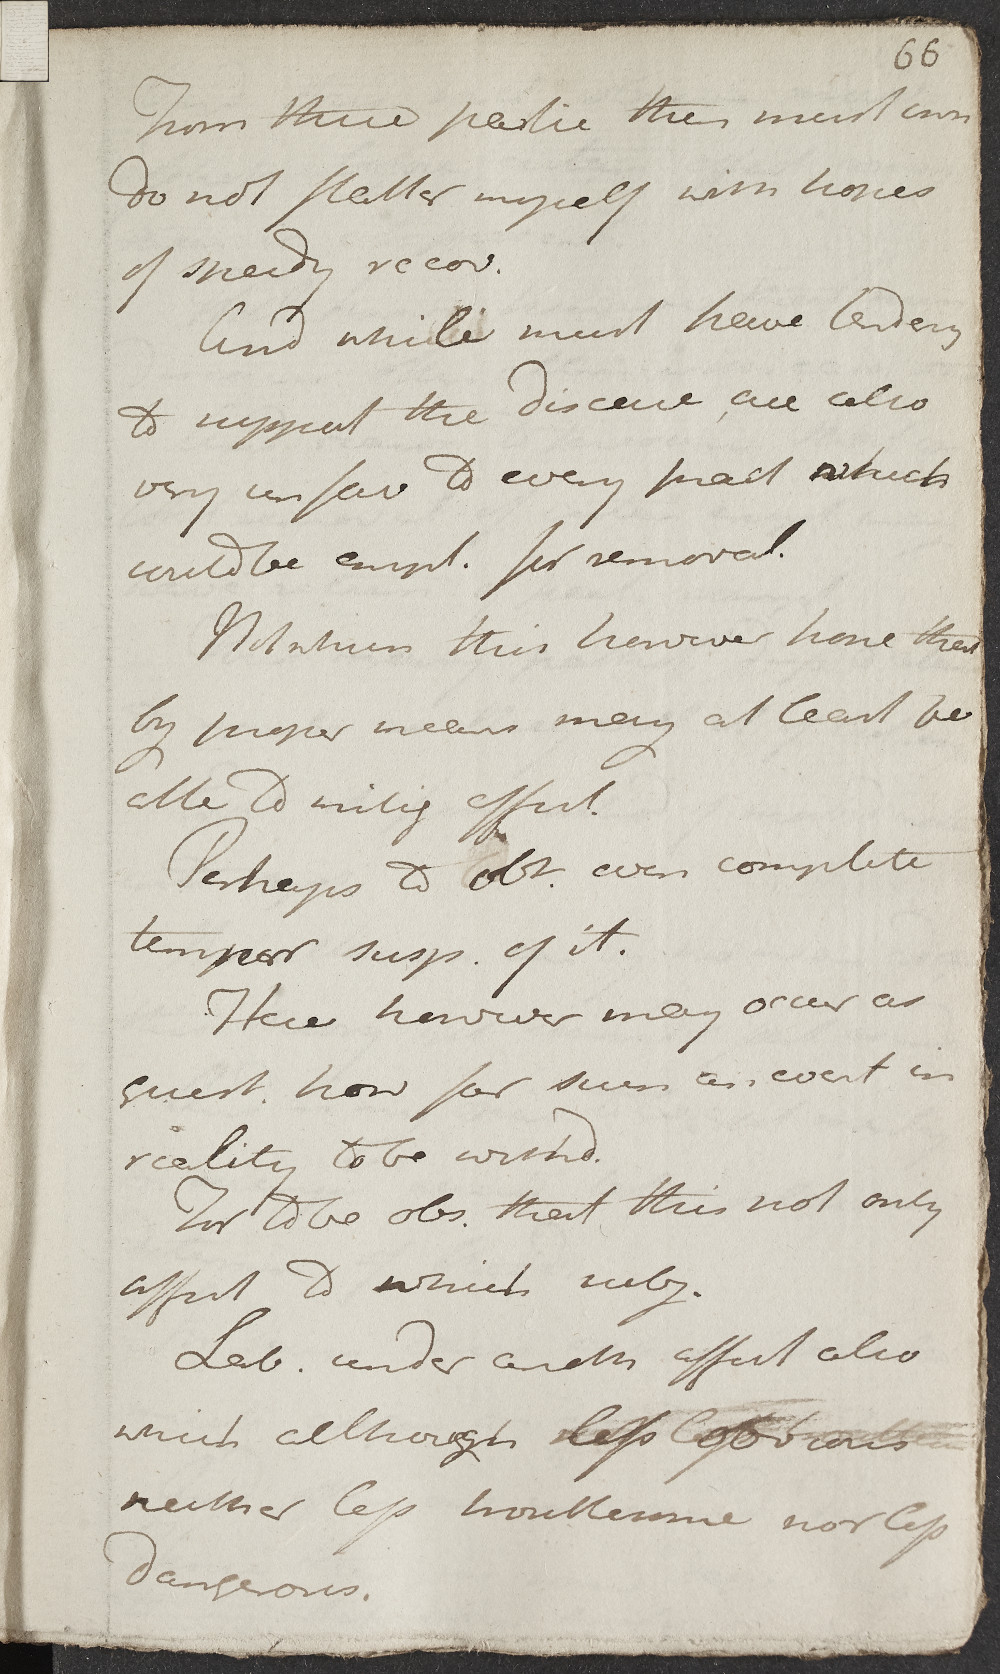 66
From these partic then must own
do not flatter myself with hopes
of speedy recov.
And while must have tendency
to support the disease are also
very unfav to every pract which
could be empl. for removal.
Notwthen this however hope that
by proper means may at least be
able to mitig affect.
Perhaps to obt. even complete
tempor susp. of it.
Here however may occur as
quest. how far such an event in
reality to be wishd.
For to be obs. that this not only
affect to which subj.
Lab. under anoth affect also
which although less obvious
neither less troublesome nor less
dangerous.